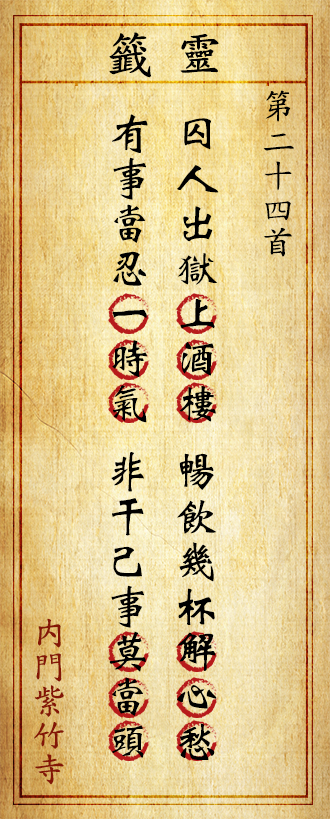 靈籤
第二十四首
囚人出獄上酒樓
暢飲幾杯解心愁
有事當忍一時氣
非干己事莫當頭
内門紫竹寺